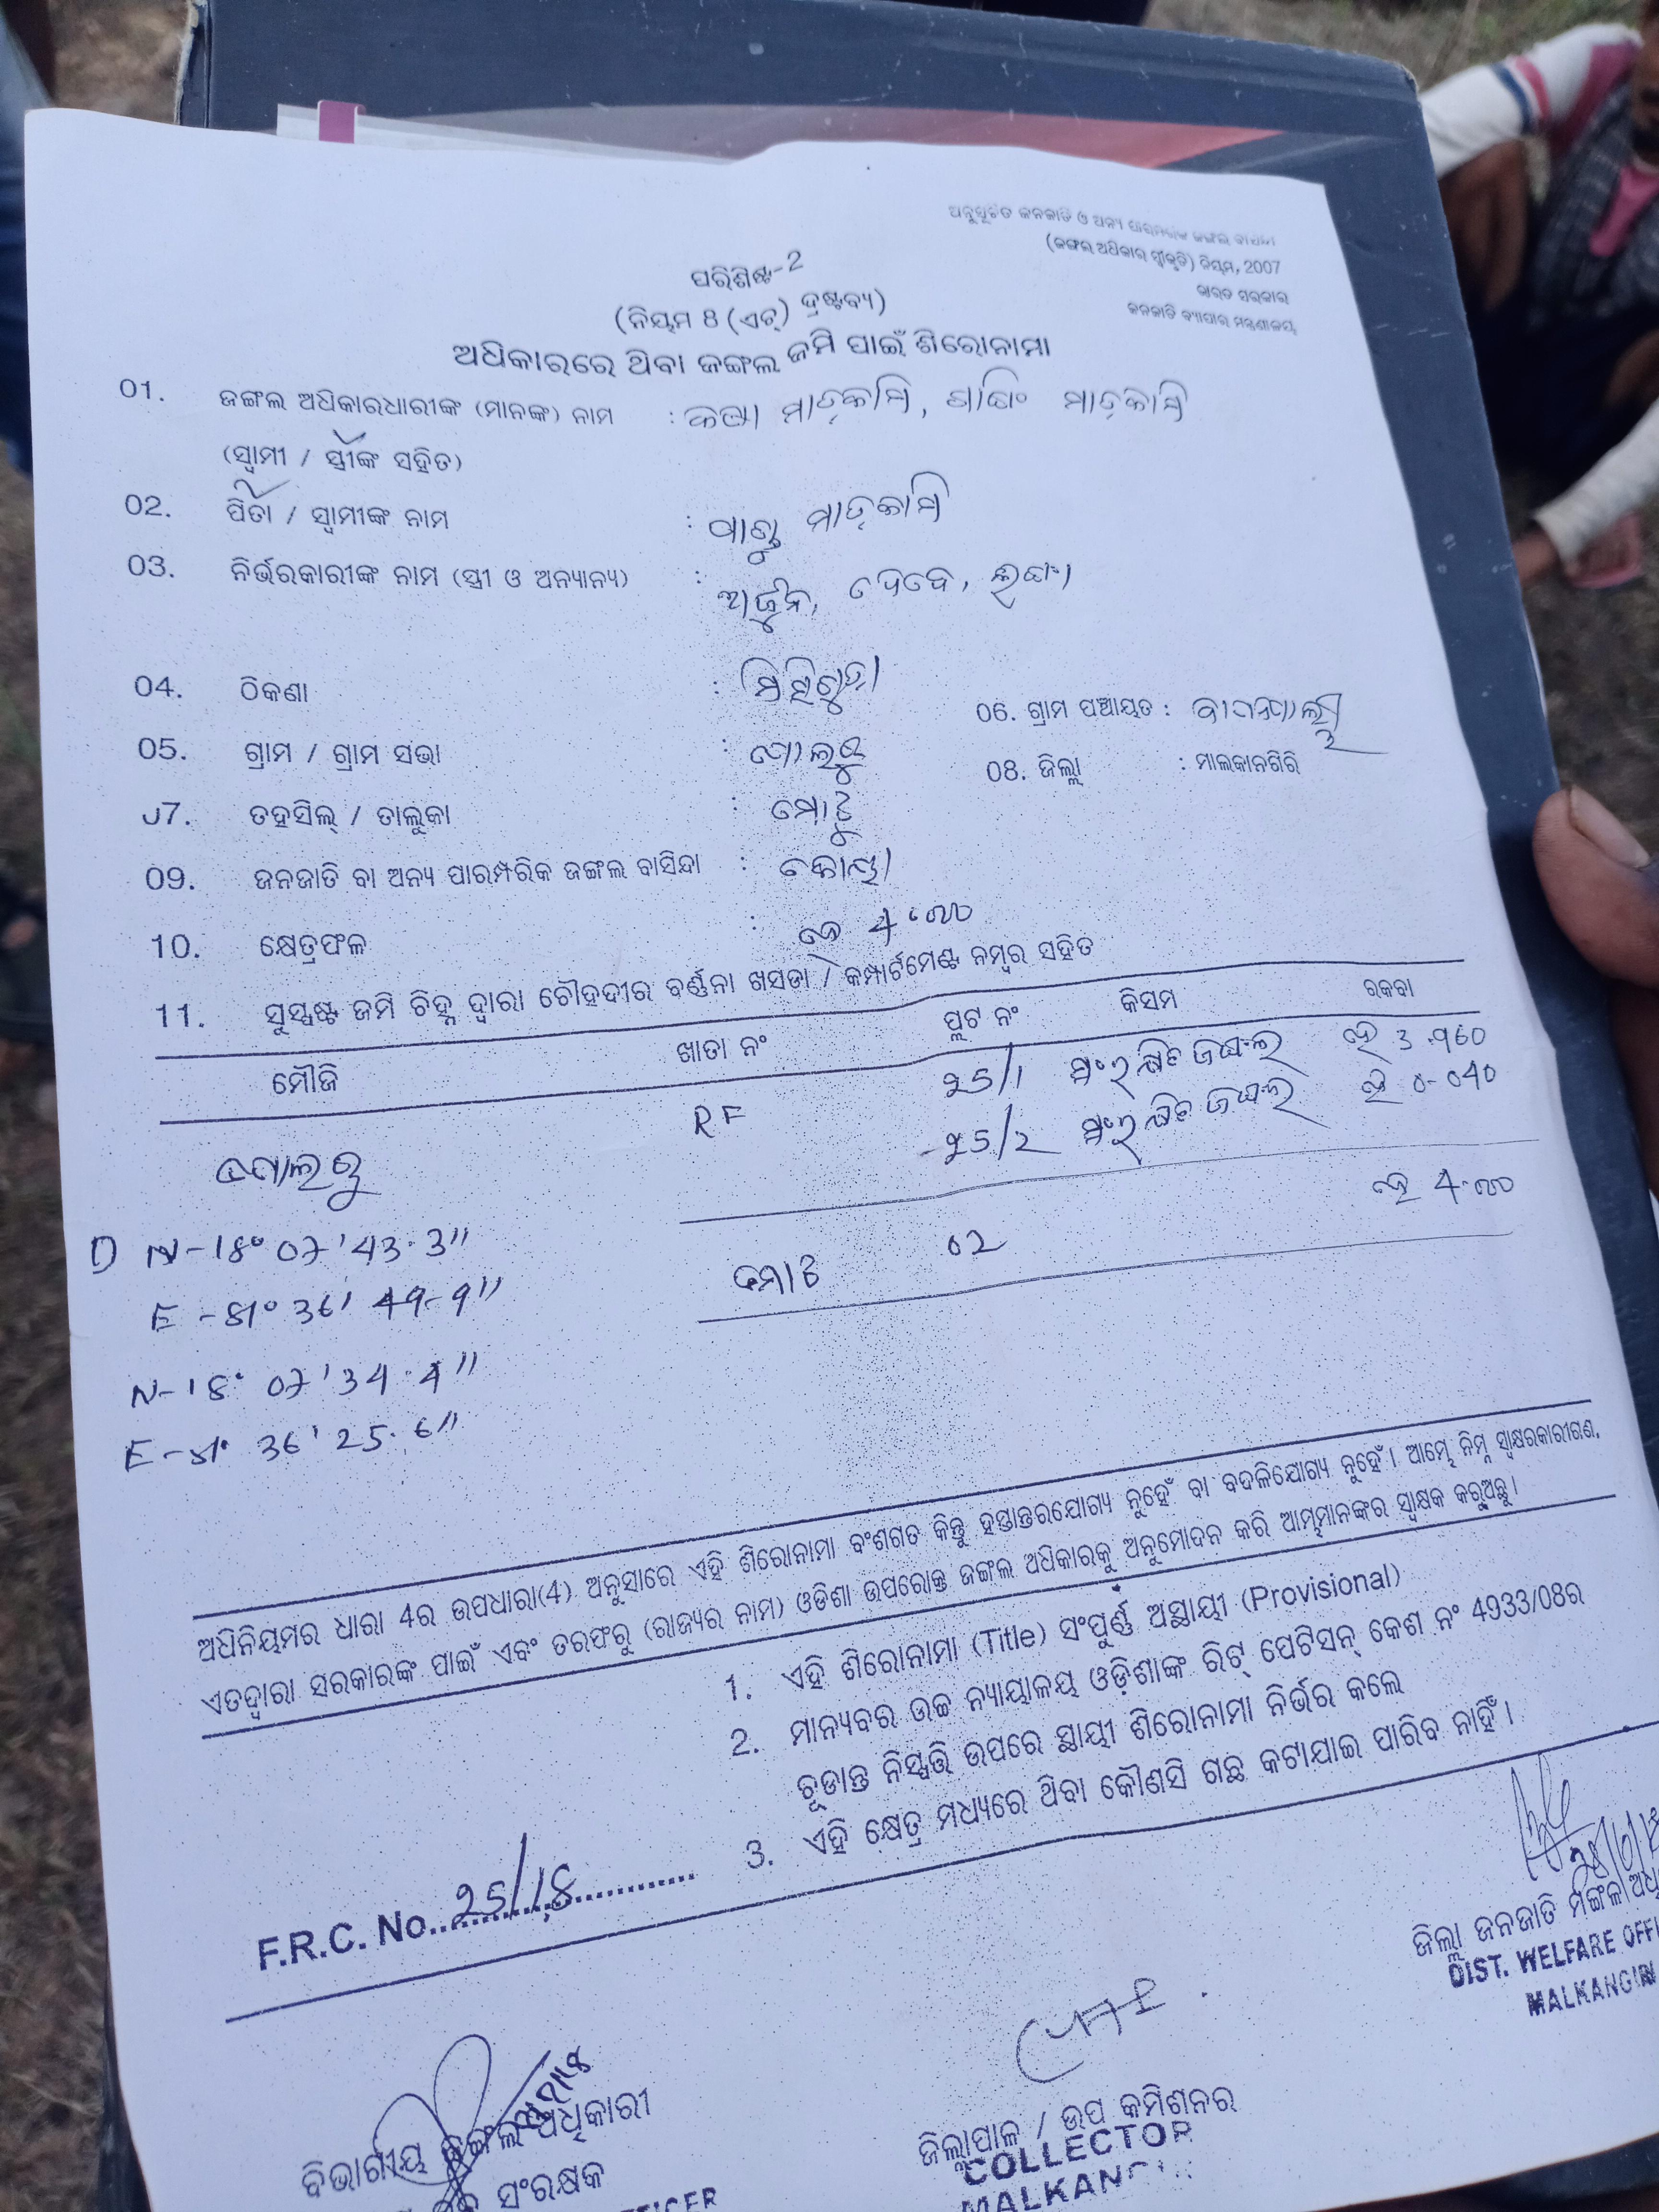 ଅନୁସୂଚିତ ଜନଜାତି ଓ ଅନ୍ୟ ପାରମ୍ପରିକ ଜଙ୍ଗଲ ବାସିନ୍ଦା
(ଜଙ୍ଗଲ ଅଧିକାର ସ୍ୱୀକୃତି) ନିୟମ, 2007
ଭାରତ ସରକାର
ଜନଜାତି ବ୍ୟାପାର ମନ୍ତ୍ରଣାଳୟ
ପରିଶିଷ୍ଟ-2
(ନିୟମ 8 (ଏଚ୍) ଦ୍ରଷ୍ଟବ୍ୟ)
ଅଧିକାରରେ ଥିବା ଜଙ୍ଗଲ ଜମି ପାଇଁ ଶିରୋନାମା
01. ଜଙ୍ଗଲ ଅଧିକାରଧାରୀଙ୍କ (ମାନଙ୍କ) ନାମ : ମାଡ଼କାମି, ମାଡ଼କାମି
(ସ୍ୱାମୀ / ସ୍ତ୍ରୀଙ୍କ ସହିତ)
02. ପିତା / ସ୍ୱାମୀଙ୍କ ନାମ : ମାଡ଼କାମି
03. ନିର୍ଭରକାରୀଙ୍କ ନାମ (ସ୍ତ୍ରୀ ଓ ଅନ୍ୟାନ୍ୟ) : ଅର୍ଜୁନ, ଦେବେ,
04. ଠିକଣା :
06. ଗ୍ରାମ ପଞ୍ଚାୟତ :
05. ଗ୍ରାମ / ଗ୍ରାମ ସଭା :
08. ଜିଲ୍ଲା : ମାଲକାନଗିରି
07. ତହସିଲ୍ / ତାଲୁକା : ମୋଟୁ
09. ଜନଜାତି ବା ଅନ୍ୟ ପାରମ୍ପରିକ ଜଙ୍ଗଲ ବାସିନ୍ଦା : କୋୟା
10. କ୍ଷେତ୍ରଫଳ : ହେ 4.00
11. ସୁସ୍ପଷ୍ଟ ଜମି ଚିହ୍ନ ଦ୍ୱାରା ଚୌହଦୀର ବର୍ଣ୍ଣନା ଖସଡା / କମ୍ପାର୍ଟମେଣ୍ଟ ନମ୍ବର ସହିତ
ମୌଜି ଖାତା ନଂ ପ୍ଲଟ ନଂ କିସମ ରକବା
RF 25/1 ସଂରକ୍ଷିତ ଜଙ୍ଗଲ ହେ 3.960
25/2 ସଂରକ୍ଷିତ ଜଙ୍ଗଲ ହେ 0-040
02 ହେ 4.00
N-18° 07' 43.3"
E-81° 36' 49-9"
N-18° 07' 34.4"
E-81° 36' 25.6"
ଅଧିନିୟମର ଧାରା 4ର ଉପଧାରା(4) ଅନୁସାରେ ଏହି ଶିରୋନାମା ବଂଶଗତ କିନ୍ତୁ ହସ୍ତାନ୍ତରଯୋଗ୍ୟ ନୁହେଁ ବା ବଦଳିଯୋଗ୍ୟ ନୁହେଁ। ଆମ୍ଭେ ନିମ୍ନ ସ୍ୱାକ୍ଷରକାରୀଗଣ,
ଏତଦ୍ୱାରା ସରକାରଙ୍କ ପାଇଁ ଏବଂ ତରଫରୁ (ରାଜ୍ୟର ନାମ) ଓଡିଶା ଉପରୋକ୍ତ ଜଙ୍ଗଲ ଅଧିକାରକୁ ଅନୁମୋଦନ କରି ଆମ୍ଭମାନଙ୍କର ସ୍ୱାକ୍ଷକ କରୁଅଛୁ।
1. ଏହି ଶିରୋନାମା (Title) ସଂପୂର୍ଣ୍ଣ ଅସ୍ଥାୟୀ (Provisional)
2. ମାନ୍ୟବର ଉଚ୍ଚ ନ୍ୟାୟାଳୟ ଓଡ଼ିଶାଙ୍କ ରିଟ୍ ପେଟିସନ୍ କେଶ ନଂ 4933/08ର
ଚୂଡାନ୍ତ ନିସ୍ପତ୍ତି ଉପରେ ସ୍ଥାୟୀ ଶିରୋନାମା ନିର୍ଭର କଲେ
3. ଏହି କ୍ଷେତ୍ର ମଧ୍ୟରେ ଥିବା କୌଣସି ଗଛ କଟାଯାଇ ପାରିବ ନାହିଁ।
F.R.C. No. 25/18
ଜିଲ୍ଲା ଜନଜାତି ମଙ୍ଗଳ
DIST. WELFARE
MALKANGIRI
ବିଭାଗୀୟ ଜଙ୍ଗଲ ଅଧିକାରୀ
ସଂରକ୍ଷକ
ଜିଲ୍ଲାପାଳ / ଉପ କମିଶନର
COLLECTOR